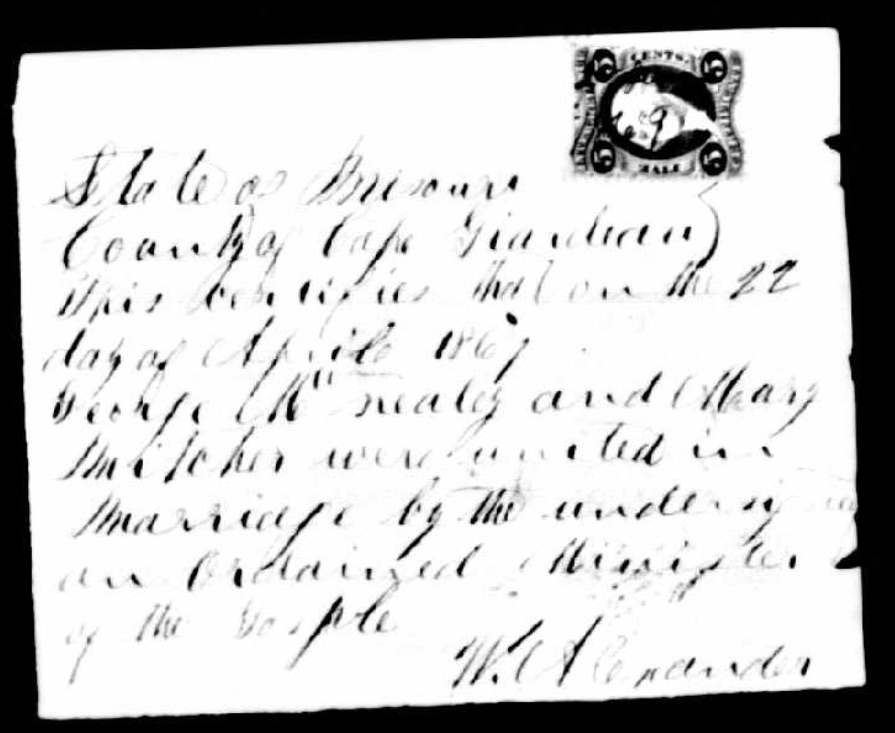 5 CENTS. 5
5 5
State of Missouri
County of Cape Girardeau }
This certifies that on the 22
day of Aprile 1867
George Mc" nealey and Mary
were united in
Marriage by the undersigned
an Ordained Minister
of the Gosple
W. Alexander